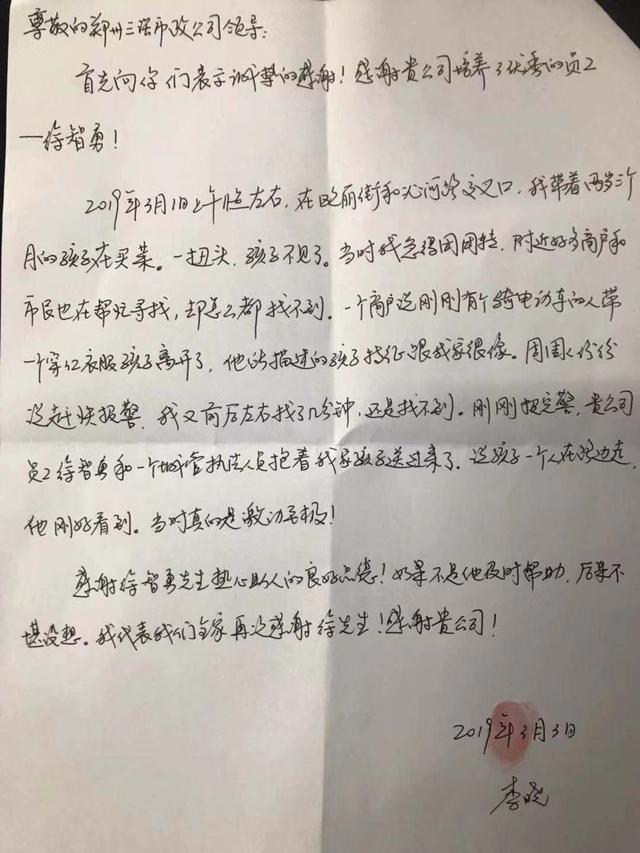 尊敬的郑州三强市政公司领导：
首先向你们表示诚挚的感谢！感谢贵公司培养了优秀的员工
—徐智勇！
2019年3月1日上午11点左右，在政丽街和沁河路交叉口，我带着两岁三个
月的孩子在买菜。一扭头，孩子不见了。当时我急得团团转，附近好多商户和
市民也在帮忙寻找，却怎么都找不到。一个商户说刚刚有个骑电动车的人带
一个穿红衣服孩子离开了，他所描述的孩子特征跟我家很像。周围人纷纷
说赶快报警，我又前后左右找了几分钟，还是找不到。刚刚报完警，贵公司
员工徐智勇和一个城管执法人员抱着我家孩子送过来了，说孩子一个人在路边走，
他刚好看到。当时真的是激动至极！
感谢徐智勇先生热心助人的良好品德！如果不是他及时帮助，后果不
堪设想。我代表我们全家再次感谢徐先生！感谢贵公司！
2019年3月3日
李晓